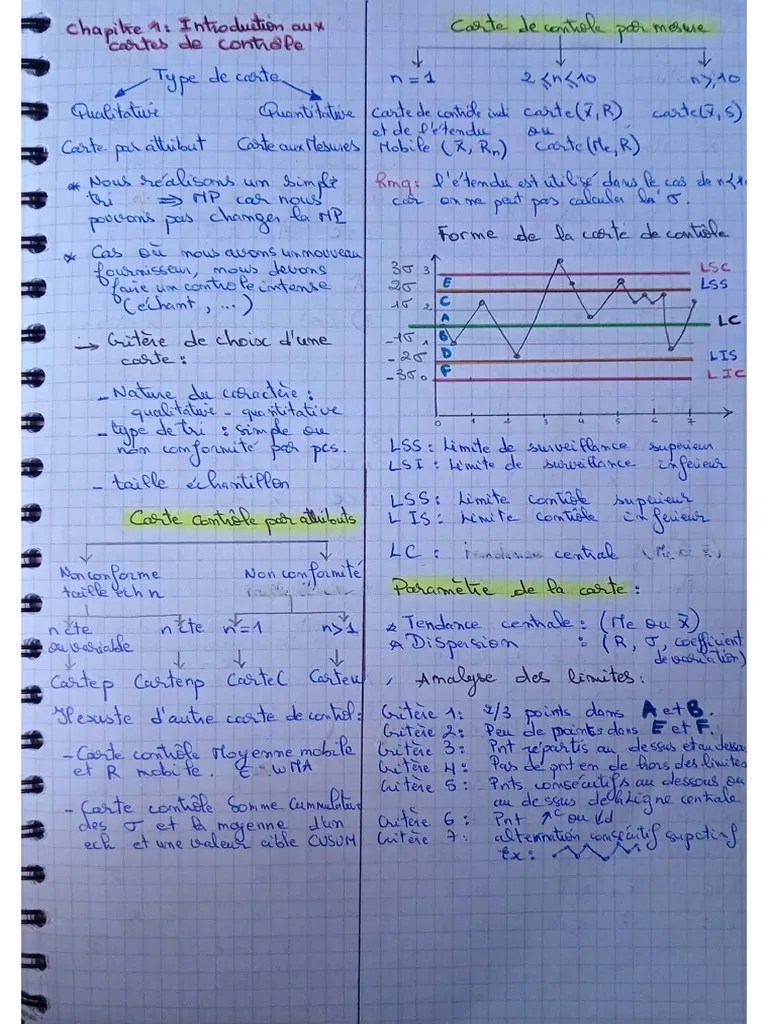 Chapitre 1: Introduction aux
cartes de contrôle
Type de carte
Qualitative Quantitative
Carte par attribut Carte aux Mesures
* Nous réalisons un simple
tri ⇒ MP car nous
pouvons pas changer la MP
* Cas où nous avons un nouveau
fournisseur, nous devons
faire un contrôle intense
(échant, ...)
→ Critère de choix d'une
carte :
- Nature du caractère :
qualitative - quantitative
- type de tri : simple ou
non conformité par pcs.
- taille échantillon
Carte contrôle par attributs
Non conforme Non conformité
taille ech n
n cte n cte n=1 n>1
ou variable
Carte p Carte np Carte C Carte u
Il existe d'autre carte de control:
- Carte contrôle Moyenne mobile
et R mobile. EWMA
- Carte contrôle Somme cummulative
des σ et la moyenne d'un
ech et une valeur cible CUSUM
Carte de contrôle par mesure
n=1 2≤n≤10 n≥10
Carte de contrôle indi carte(x̄,R) carte(x̄,S)
et de l'étendu ou
Mobile (x̄, Rn) Carte(Me,R)
Rmq: l'étendu est utilisé dans le cas de n<
car on ne peut pas calculer la σ.
Forme de la carte de contrôle
3σ 3 LSC
E
2σ LSS
C
1σ 2
A
LC
B
-1σ 1
D
-2σ LIS
F
-3σ 0 LIC
0 1 2 3 4 5 6 7
LSS : Limite de surveillance superieur
LSI : Limite de surveillance inferieur
LSS : Limite contrôle superieur
LIS : Limite contrôle inferieur
LC : centrale
Paramètre de la carte :
* Tendance centrale : (Me ou x̄)
* Dispersion : (R, σ, coefficient
de variation)
Analyse des limites :
Critère 1: 2/3 points dans A et B.
Critère 2: Peu de points dans E et F.
Critère 3: Pnt répartis au dessus et au dessou
Critère 4: Pas de pnt en de hors des limites
Critère 5: Pnts consécutifs au dessous ou
au dessus de la Ligne centrale
Critère 6: Pnt ↑c ou ↓d
Critère 7: alternation consécutif
Ex: